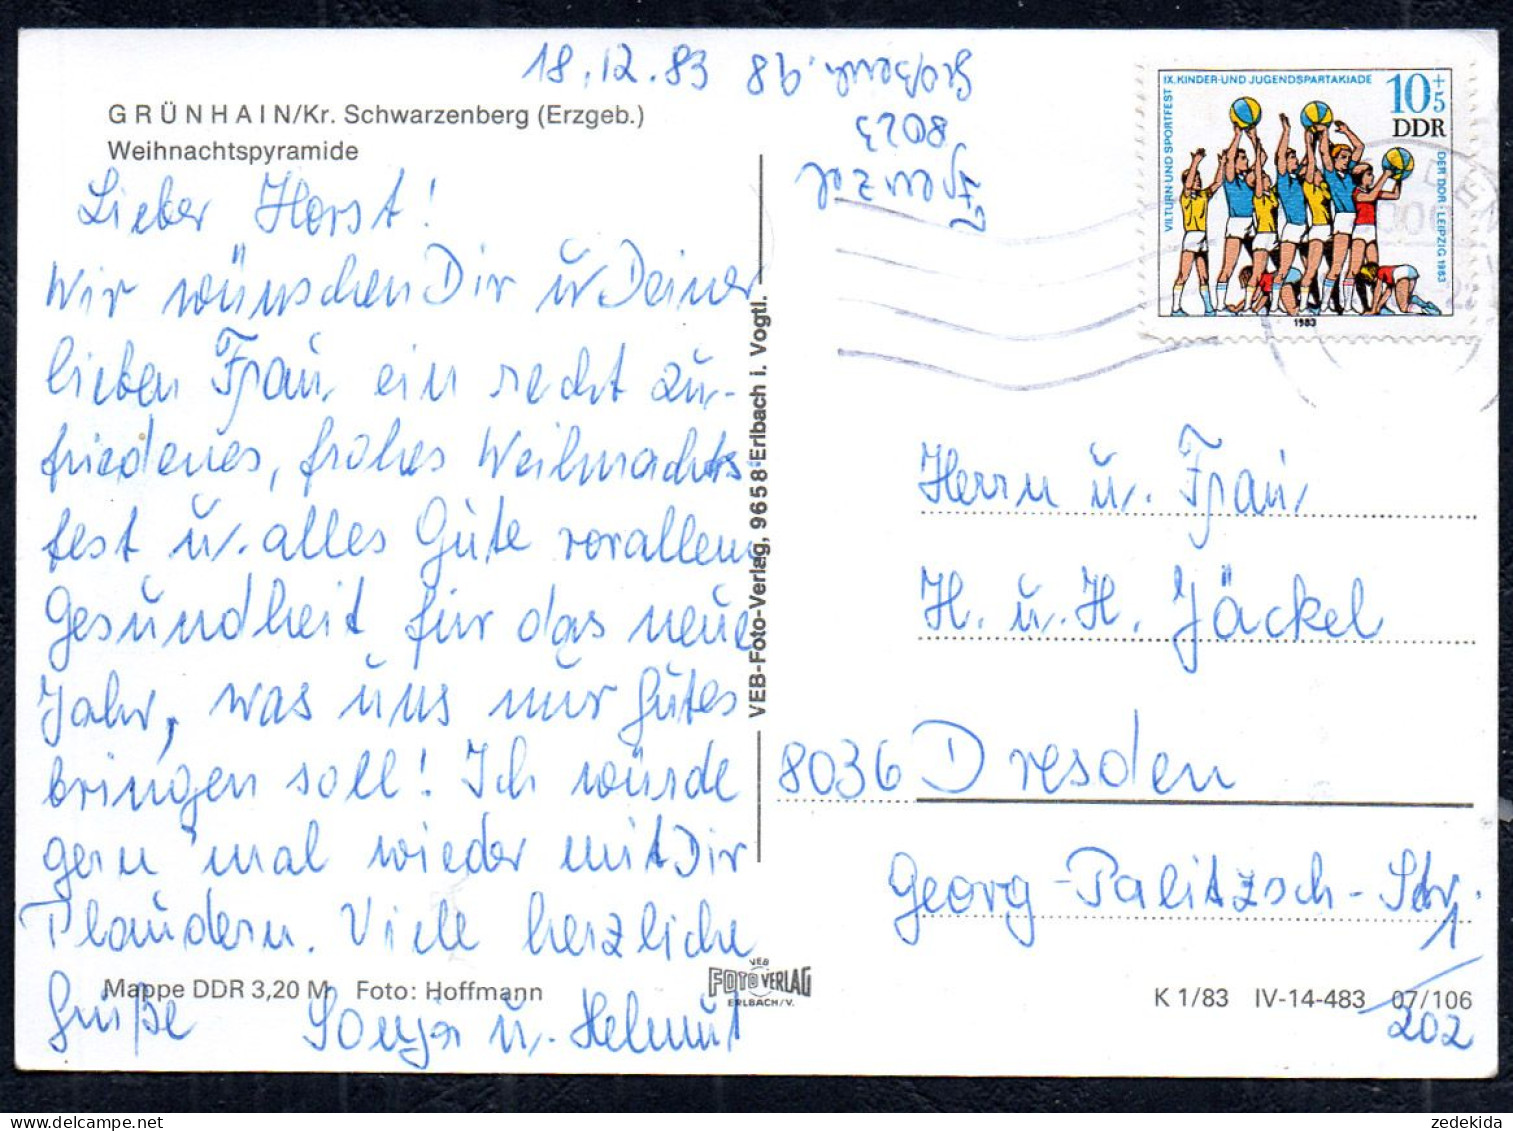 18.12.83
Großenh. 98
8023
Frenzel
GRÜNHAIN/Kr. Schwarzenberg (Erzgeb.)
Weihnachtspyramide
Lieber Horst!
Wir wünschen Dir u. Deiner
lieben Frau ein recht zu-
friedenes, frohes Weihnachts
fest u. alles Gute vorallem
Gesundheit für das neue
Jahr, was uns nur Gutes
bringen soll! Ich würde
gern mal wieder mit Dir
Plaudern. Viele herzliche
Grüße Sonja u. Helmut
Mappe DDR 3,20 M Foto: Hoffmann
VEB-Foto-Verlag, 9658 Erlbach i. Vogtl.
VEB
FOTO VERLAG
ERLBACH/V.
IX. KINDER-UND JUGENDSPARTAKIADE
VII. TURN UND SPORTFEST
DER DDR · LEIPZIG 1983
10+5
DDR
1983
Herrn u. Frau
H. u. H. Jäckel
8036 Dresden
Georg-Palitzsch-Str.
1/202
K 1/83 IV-14-483 07/106
zedekida